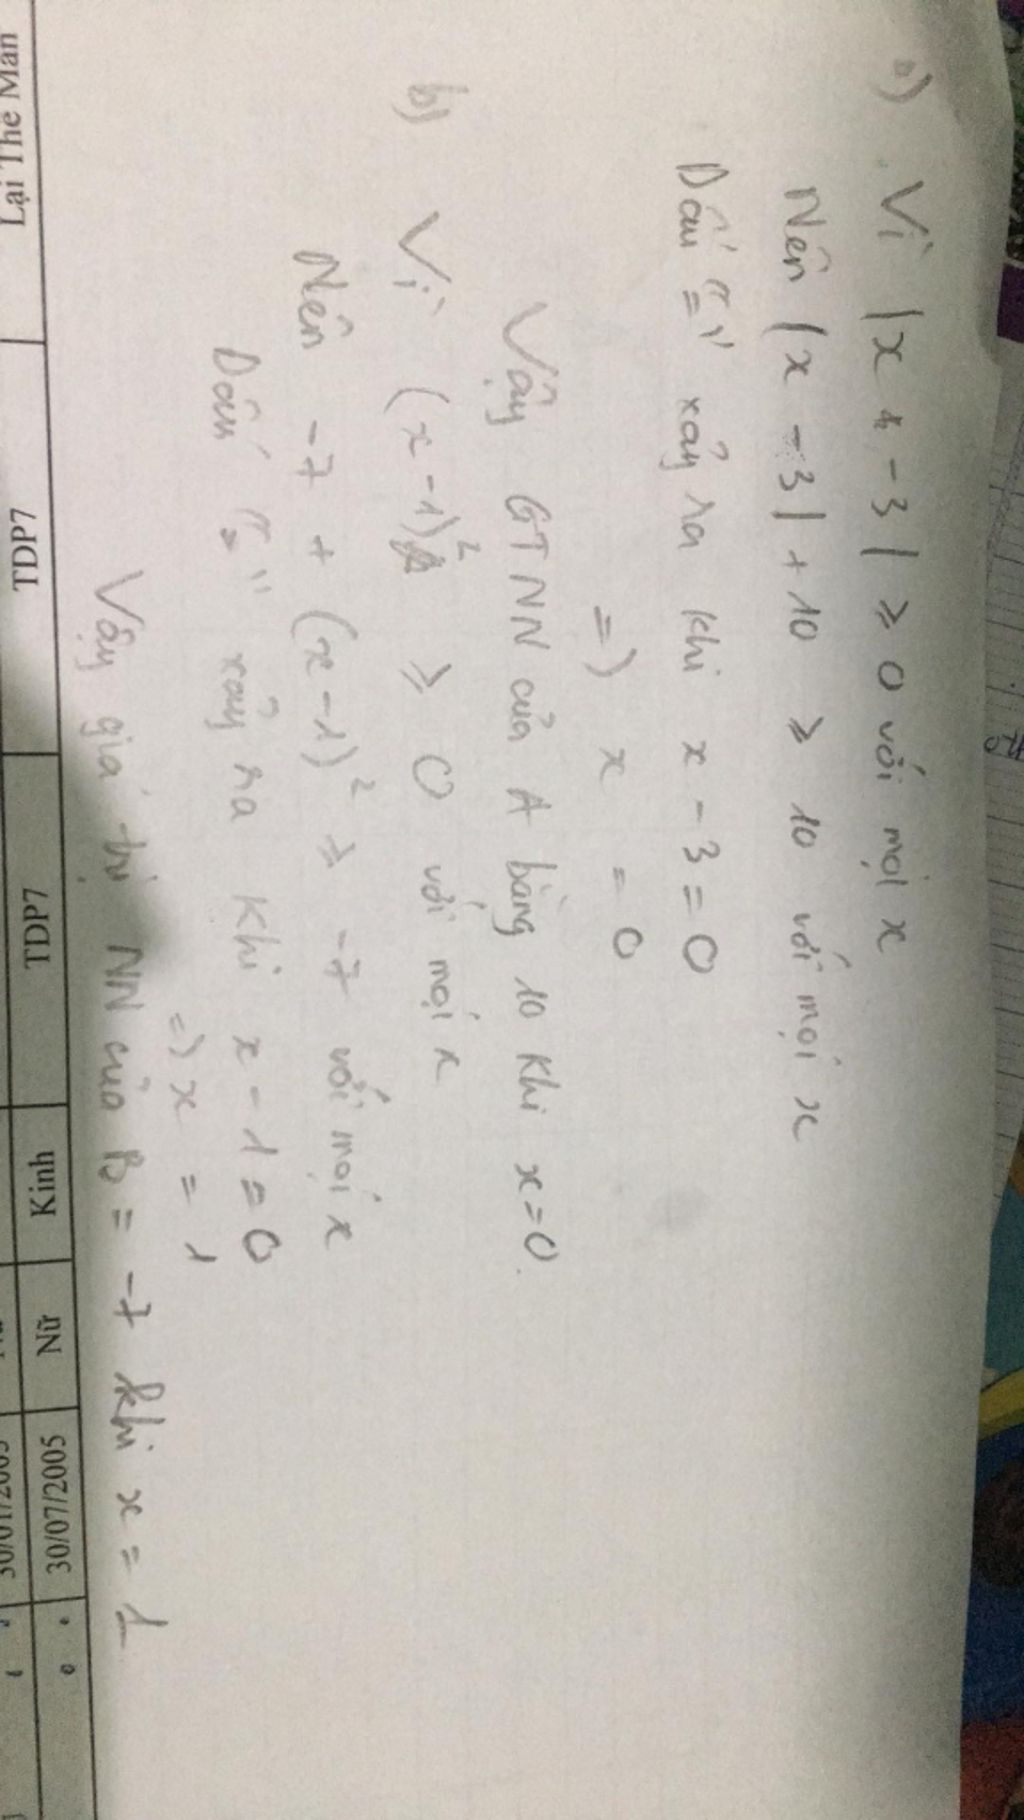 a) Vì |x - 3| ≥ 0 với mọi x
Nên |x - 3| + 10 ≥ 10 với mọi x
Dấu "=" xảy ra khi x - 3 = 0
=) x = 0
Vậy GTNN của A bằng 10 khi x = 0.
b) Vì (x - 1)² ≥ 0 với mọi x
Nên -7 + (x - 1)² ≥ -7 với mọi x
Dấu "=" xảy ra khi x - 1 = 0
=) x = 1
Vậy giá trị NN của B = -7 khi x = 1
TDP7 TDP7 Kinh Nữ 30/07/2005
Lại The Man